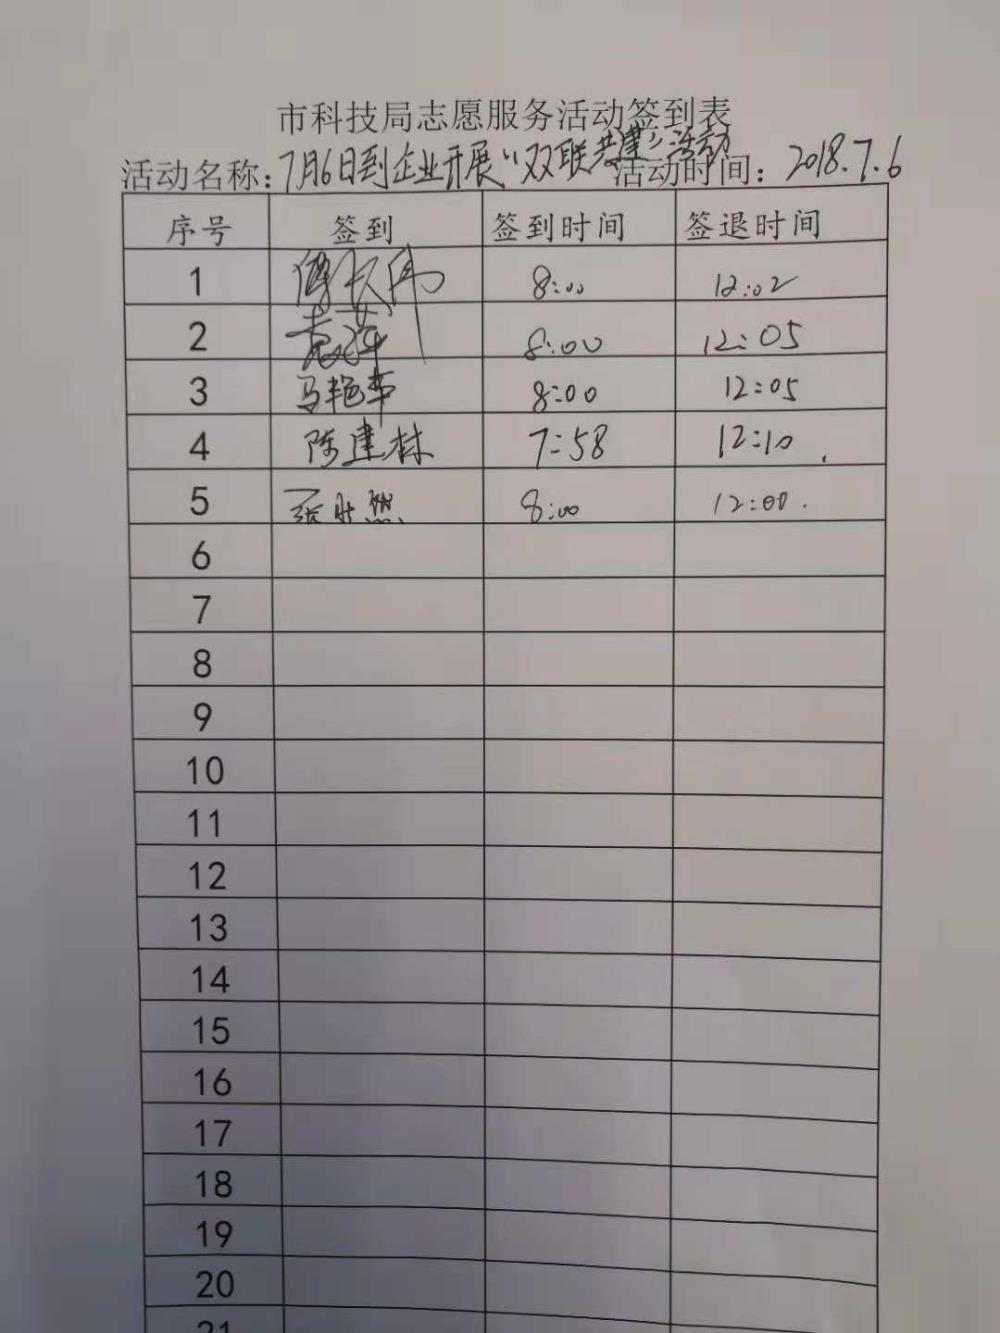 市科技局志愿服务活动签到表
活动名称：7月6日到企业开展“双联共建”活动 活动时间：2018.7.6
序号 签到 签到时间 签退时间
1 8:00 12:02
2 8:00 12:05
3 马艳华 8:00 12:05
4 陈建林 7:58 12:10
5 8:00 12:00
6
7
8
9
10
11
12
13
14
15
16
17
18
19
20
21